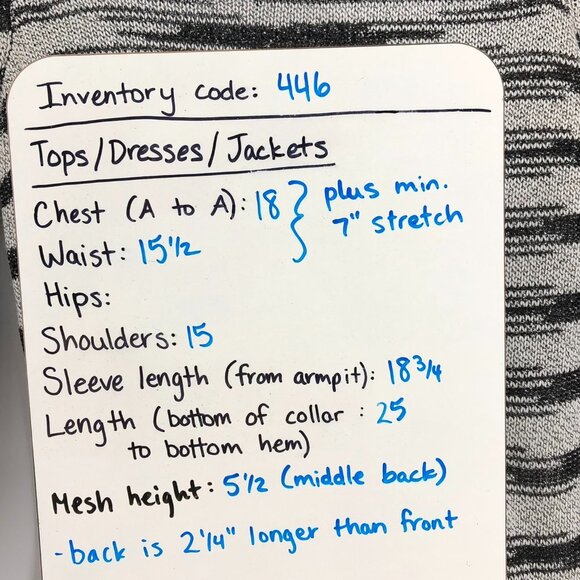 Inventory code: 446
Tops/Dresses/Jackets
Chest (A to A): 18 } plus min.
7" stretch
Waist: 15 1/2
Hips:
Shoulders: 15
Sleeve length (from armpit): 18 3/4
Length (bottom of collar : 25
to bottom hem)
Mesh height: 5 1/2 (middle back)
- back is 2 1/4" longer than front